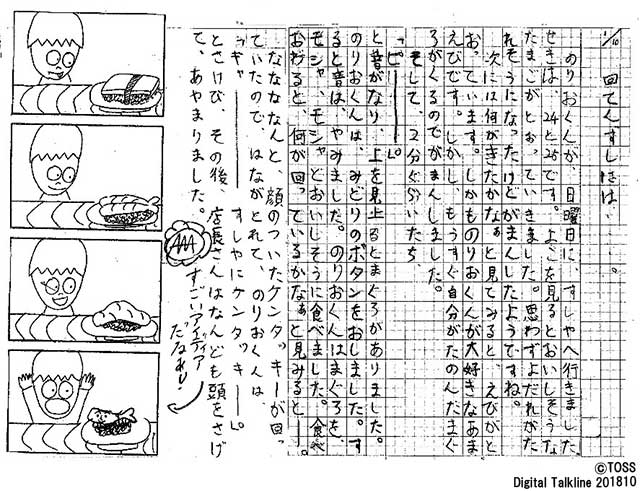 1/10
回てんずしには…
のりおくんが、日曜日に、すしやへ行きました。
せきは、24と25です。よこを見るとおいしそうな
たまごがとおっていきました。思わずよだれがた
れそうになったけどがまんしたようですね。
次には何がきたかなぁと見てみると、えびがと
おっています。しかものりおくんが大好きなあま
えびです。しかし、もうすぐ自分がたのんだまぐ
ろがくるのでがまんしました。
そして、2分ぐらいたち、
「ピーーー。」
と音がなり、上を見上るとまぐろがありました。
のりおくんは、みどりのボタンをおしました。す
ると音は、やみました。のりおくんはまぐろを、
モシャ、モシャとおいしそうに食べました。食べ
おわると、何が回っているかなぁと見みると―。
ななななんと、顔のついたケンタッキーが回っ
ていたので、はながとれて、のりおくんは
「ギャーーーすしやにケンタッキー。」
とさけび、その後、店長さんはなんども頭をさげ
て、あやまりました。
AAA
すごいアイディア
だなぁ!
©TOSS
Digital Talkline 201810